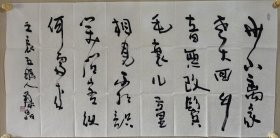 少小离家
老大回乡
音无改鬓
毛衰儿童
相见不相识
笑问客从
何处来